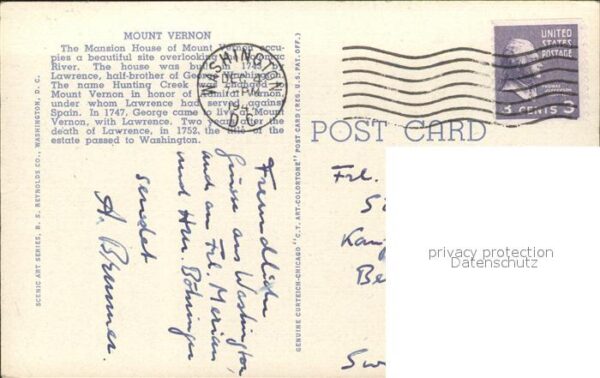 MOUNT VERNON
The Mansion House of Mount Vernon occu-
pies a beautiful site overlooking the Potomac
River. The house was built in 1743 by
Lawrence, half-brother of George Washington.
The name Hunting Creek was changed to
Mount Vernon in honor of Admiral Vernon,
under whom Lawrence had served against
Spain. In 1747, George came to live at Mount
Vernon, with Lawrence. Two years after the
death of Lawrence, in 1752, the title of the
estate passed to Washington.
SCENIC ART SERIES, B. S. REYNOLDS CO., WASHINGTON, D. C.
Freundliche
Grüsse aus Washington,
auch an Frl. Merian
und Hrn. Böhringer
sendet
A. Brunner.
GENUINE CURTEICH-CHICAGO "C.T. ART-COLORTONE" POST CARD (REG. U.S. PAT. OFF.)
WASHINGTON
DEC
PM
UNITED
STATES
POSTAGE
THOMAS JEFFERSON
3 CENTS 3
POST CARD
Frl.
Kan
Be
Sw
privacy protection
Datenschutz